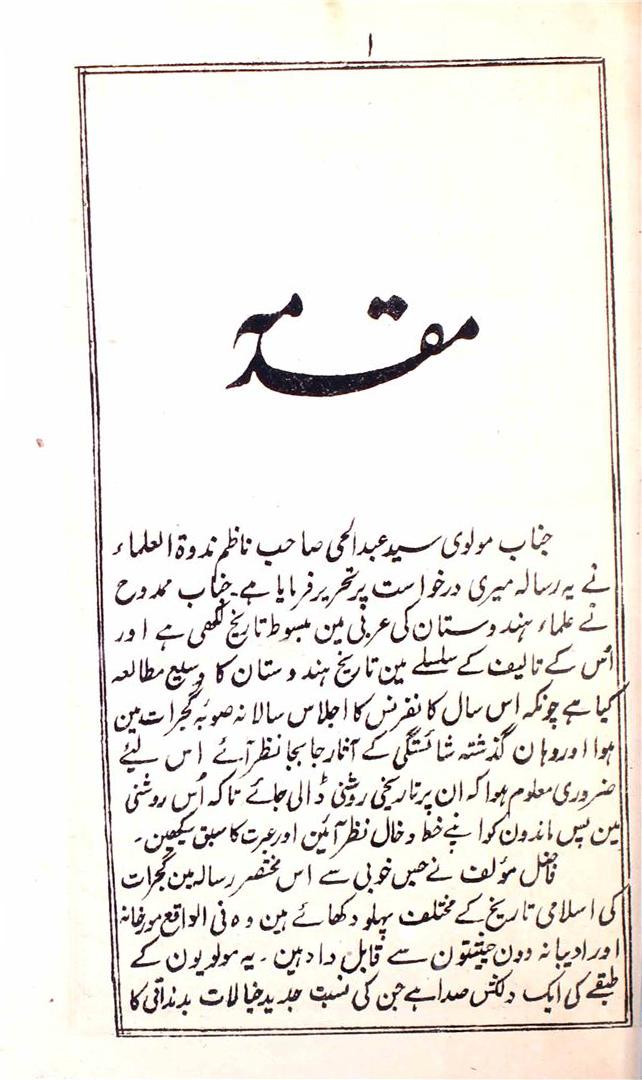 ۱
مقدمہ
جناب مولوی سید عبدالحی صاحب ناظم ندوۃ العلماء
نے یہ رسالہ میری درخواست پر تحریر فرمایا ہے۔ جناب ممدوح
نے علماء ہندوستان کی عربی مین مبسوط تاریخ لکھی ہے اور
اُس کے تالیف کے سلسلے مین تاریخ ہندوستان کا وسیع مطالعہ
کیا ہے چونکہ اس سال کانفرنس کا اجلاس سالانہ صوبۂ گجرات مین
ہوا اور وہان گذشتہ شائستگی کے آثار جا بجا نظر آئے اس لیئے
ضروری معلوم ہوا کہ ان پر تاریخی روشنی ڈالی جائے تاکہ اُس روشنی
مین پس ماندون کو اپنے خط و خال نظر آئین اور عبرت کا سبق سیکھین۔
فاضل مؤلف نے جس خوبی سے اس مختصر رسالہ مین گجرات
کی اسلامی تاریخ کے مختلف پہلو دکھائے ہین وہ فی الواقع مورخانہ
اور ادیبانہ دون حیثیتون سے قابل داد ہین۔ یہ مولویون کے
طبقے کی ایک دلکش صدا ہے جن کی نسبت جدید خیالات بدمذاقی کا